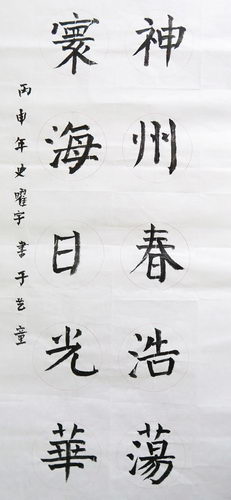 神州春浩蕩
寰海日光華
丙申年史曜宇書于艺童